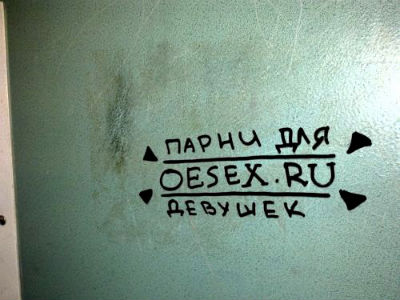 ПАРНИ ДЛЯ
OESEX.RU
ДЕВУШЕК